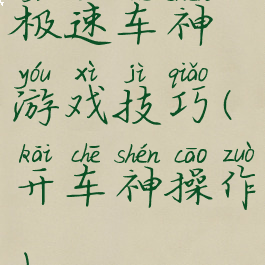 极速车神
yóu xì jì qiǎo
游戏技巧(
kāi chē shén cāo zuò
开车神操作
)